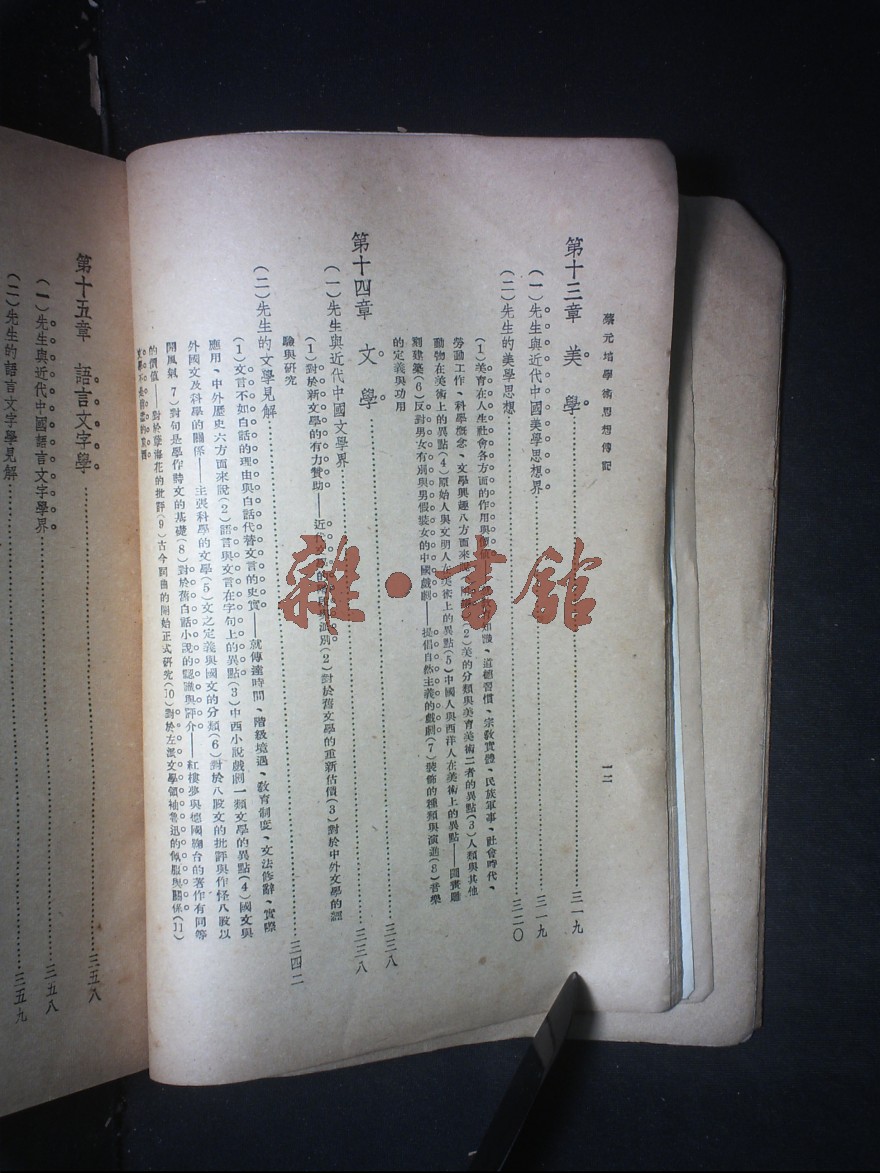 蔡元培學術思想傳記
一二
第十三章 美學……三一九
(一)先生與近代中國美學思想界……三一九
(二)先生的美學思想……三二〇
(1)美育在人生社會各方面的作用與 知識、道德習慣、宗教實體、民族軍事、社會時代、
勞動工作、科學概念、文學興趣八方面來 (2)美的分類與美育美術二者的異點(3)人類與其他
動物在美術上的異點(4)原始人與文明人在美術上的異點(5)中國人與西洋人在美術上的異點——圖畫雕
刻建築(6)反對男女有別與男假裝女的中國戲劇——提倡自然主義的戲劇(7)裝飾的種類與演進(8)音樂
的定義與功用
第十四章 文學……三三八
(一)先生與近代中國文學界……三三八
(1)對於新文學的有力贊助——近 別(2)對於舊文學的重新估價(3)對於中外文學的經
驗與研究
(二)先生的文學見解……三四二
(1)文言不如白話的理由與白話代替文言的史實——就傳達時間、階級境遇、教育制度、文法修辭、實際
應用、中外歷史六方面來說(2)語言與文言在字句上的異點(3)中西小說戲劇一類文學的異點(4)國文與
外國文及科學的關係——主張科學的文學(5)文之定義與國文的分類(6)對於八股文的批評與作怪八股以
開風氣(7)對句是學作詩文的基礎(8)對於舊白話小說的認識與評介——紅樓夢與德國 台的著作有同等
的價值——對於孽海花的批評(9)古今詞曲的開始正式研究(10)對於左派文學領袖魯迅的佩服與關係(11)
第十五章 語言文字學……三五八
(一)先生與近代中國語言文字學界……三五八
(二)先生的語言文字學見解……三五九
雜·書館